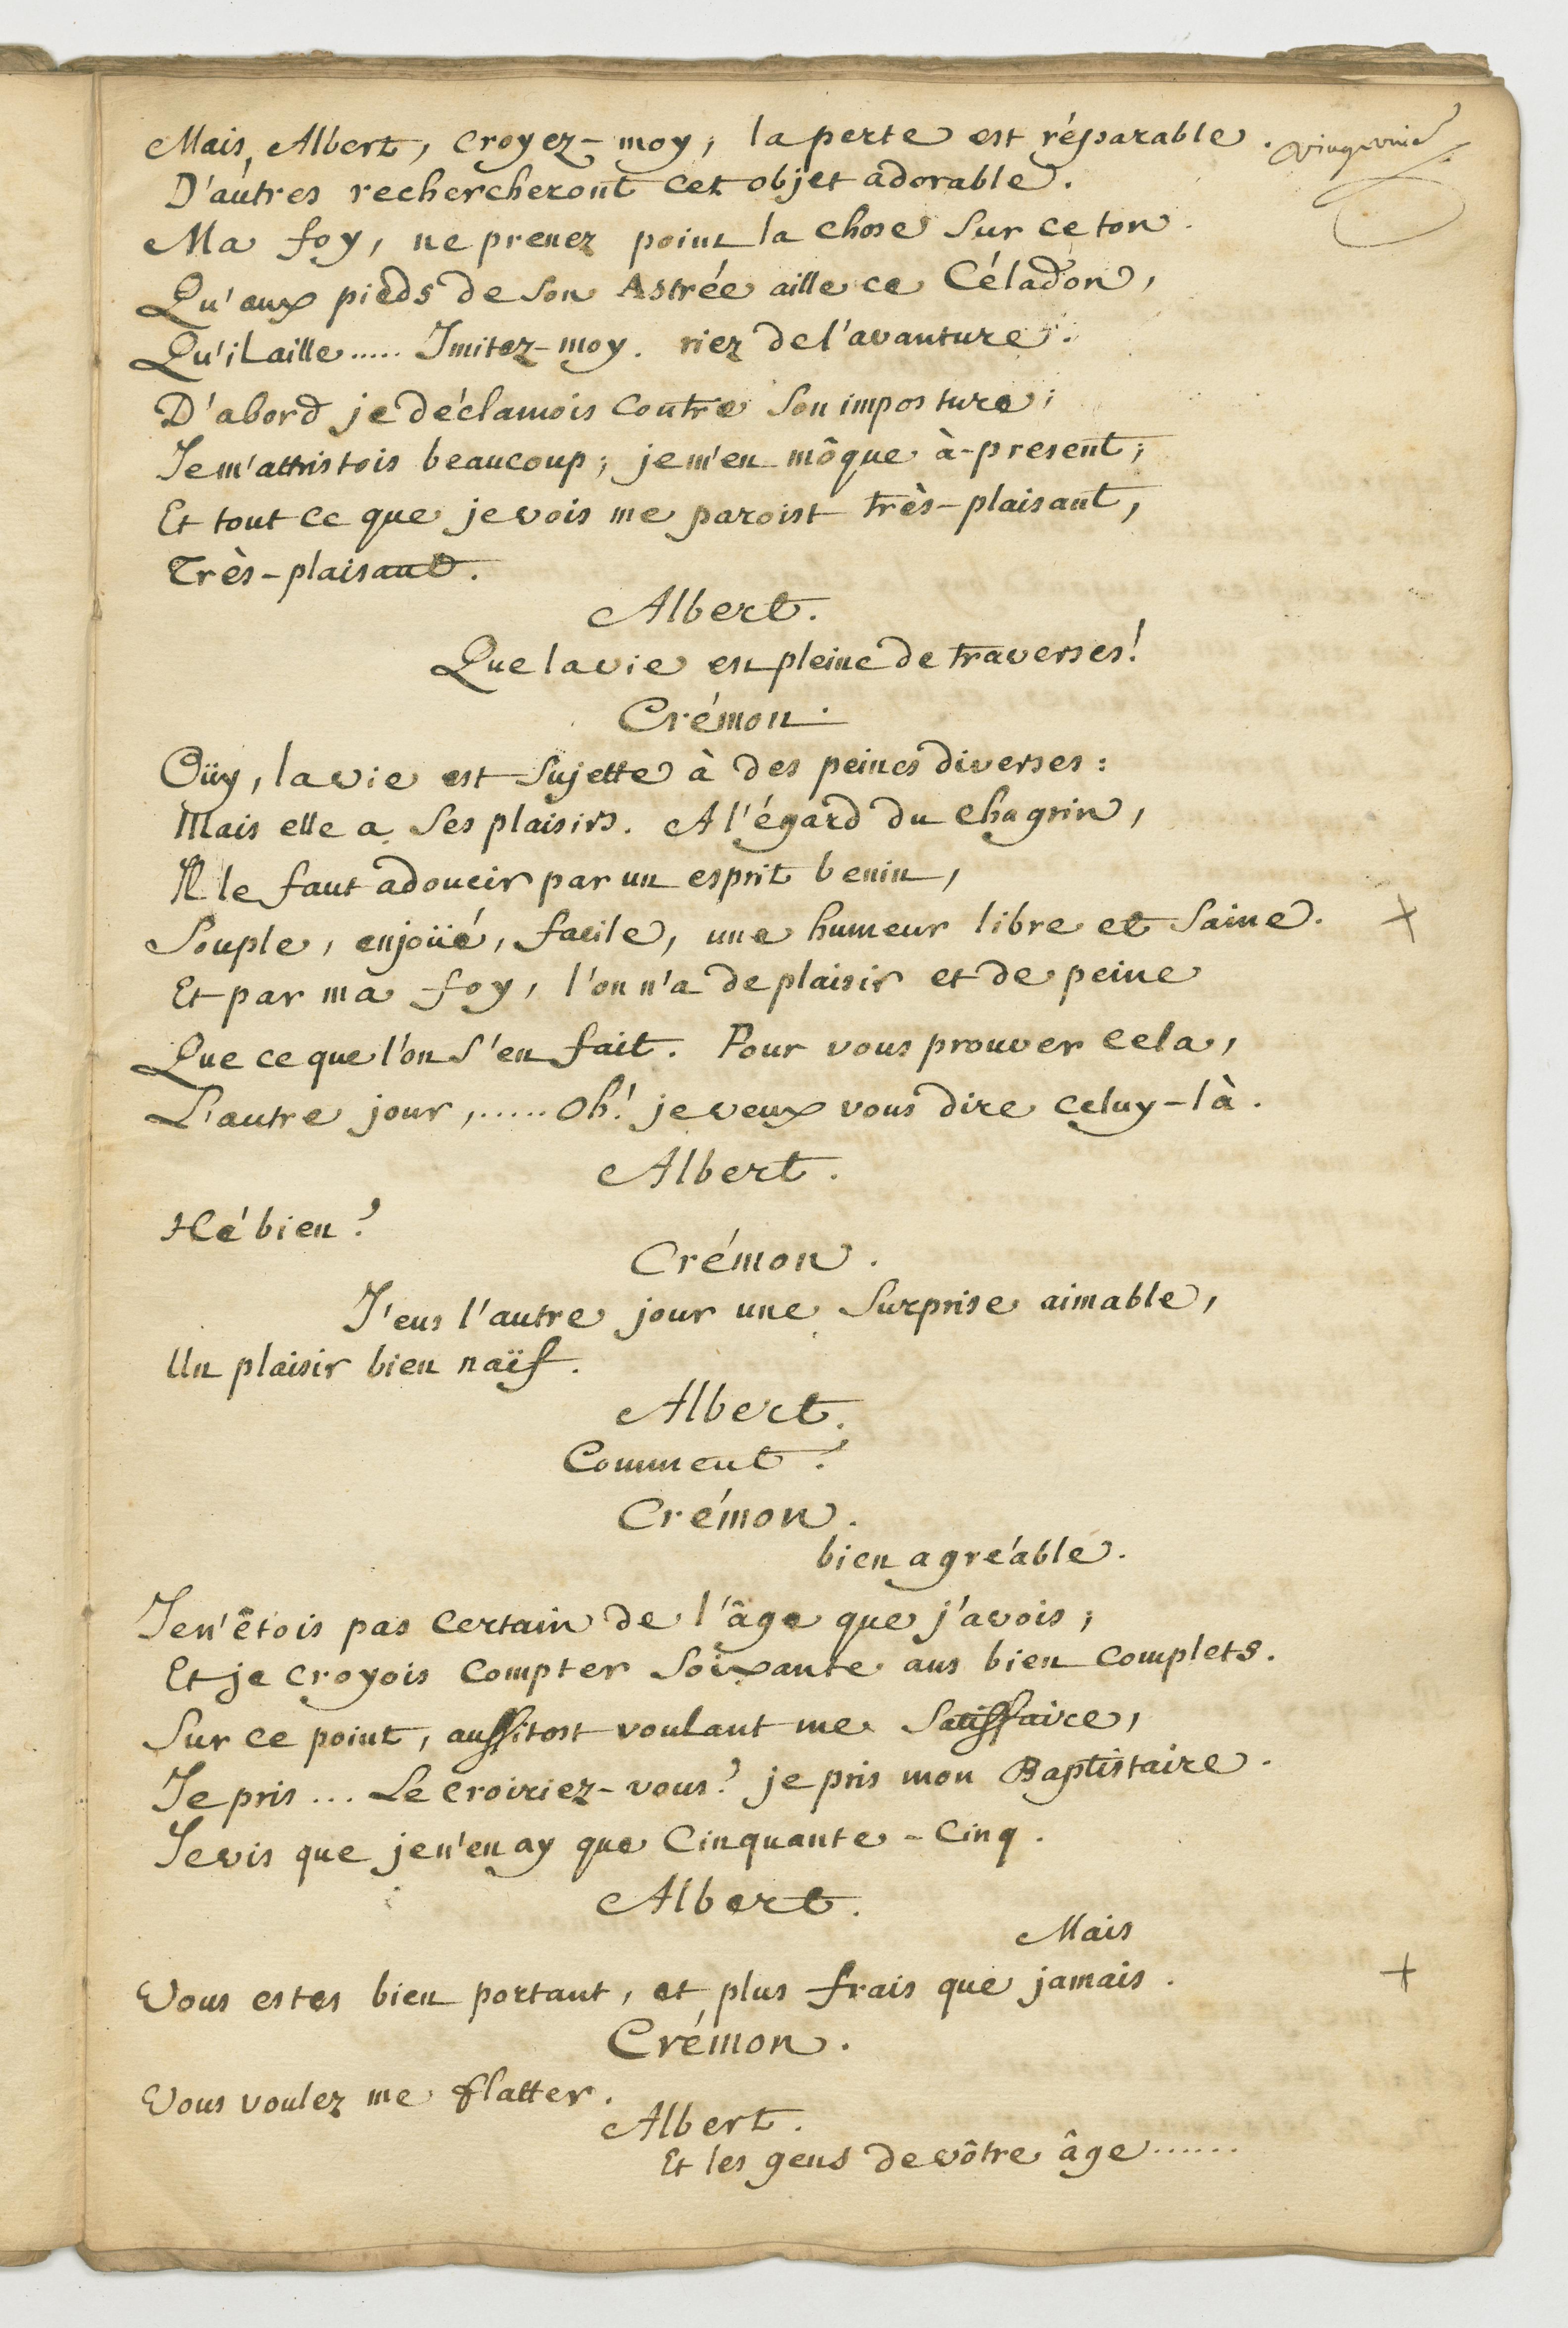 Mais, Albert, croyez-moy, la perte est réparable.
D'autres rechercheront cet objet adorable.
Ma foy, ne prenez point la chose sur ce ton.
Qu'aux pieds de son Astrée aille ce Céladon,
Qu'il aille..... Imitez-moy. riez de l'avanture.
D'abord je déclamois contre son imposture;
Je m'attristois beaucoup; je m'en môque à-present;
Et tout ce que je vois me paroist très-plaisant,
Très-plaisant.
Albert.
Que la vie est pleine de traverses!
Crémon.
Oüy, la vie est sujette à des peines diverses:
Mais elle a ses plaisirs. A l'égard du chagrin,
Il le faut adoucir par un esprit benin,
Souple, enjoüé, facile, une humeur libre et saine. +
Et par ma foy, l'on n'a de plaisir et de peine
Que ce que l'on s'en fait. Pour vous prouver cela,
L'autre jour,..... Oh! je veux vous dire celuy-là.
Albert.
Hé bien?
Crémon.
J'eus l'autre jour une surprise aimable,
Un plaisir bien naïf.
Albert.
Comment?
Crémon.
bien agréable.
Je n'êtois pas certain de l'âge que j'avois;
Et je croyois compter soixante ans bien complets.
Sur ce point, aussitost voulant me satisfaire,
Je pris... Le croiriez-vous? je pris mon Baptistaire.
Je vis que je n'en ay que cinquante-cinq.
Albert.
Mais
Vous estes bien portant, et plus frais que jamais. +
Crémon.
Vous voulez me flatter.
Albert.
Et les gens de vôtre âge......